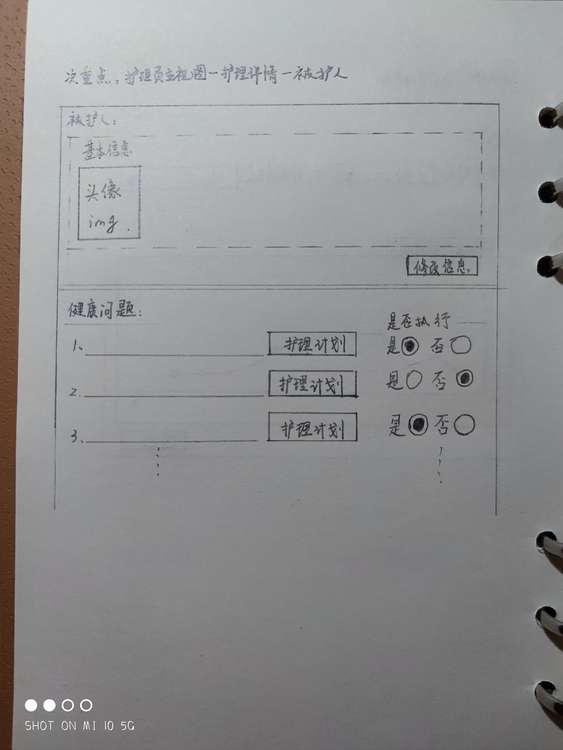 次重点：护理员主视图-护理详情-被护人
被护人：
基本信息
头像
img.
修改信息.
健康问题：
是否执行
1、 护理计划 是 否
2、 护理计划 是 否
3、 护理计划 是 否
SHOT ON MI 10 5G